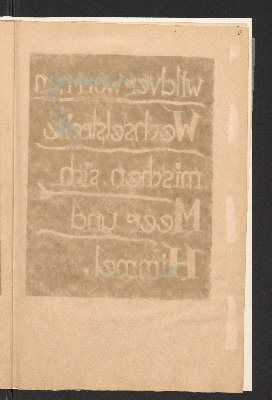 wildverworren
Wechselstreite
mischen sich
Meer und
Himmel.